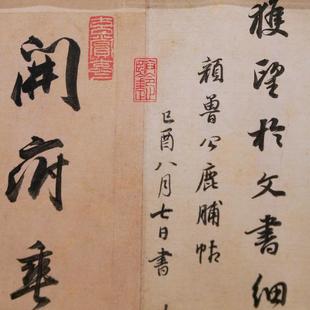 獲望於文書細
顏魯公鹿脯帖
己酉八月七日書
開府垂